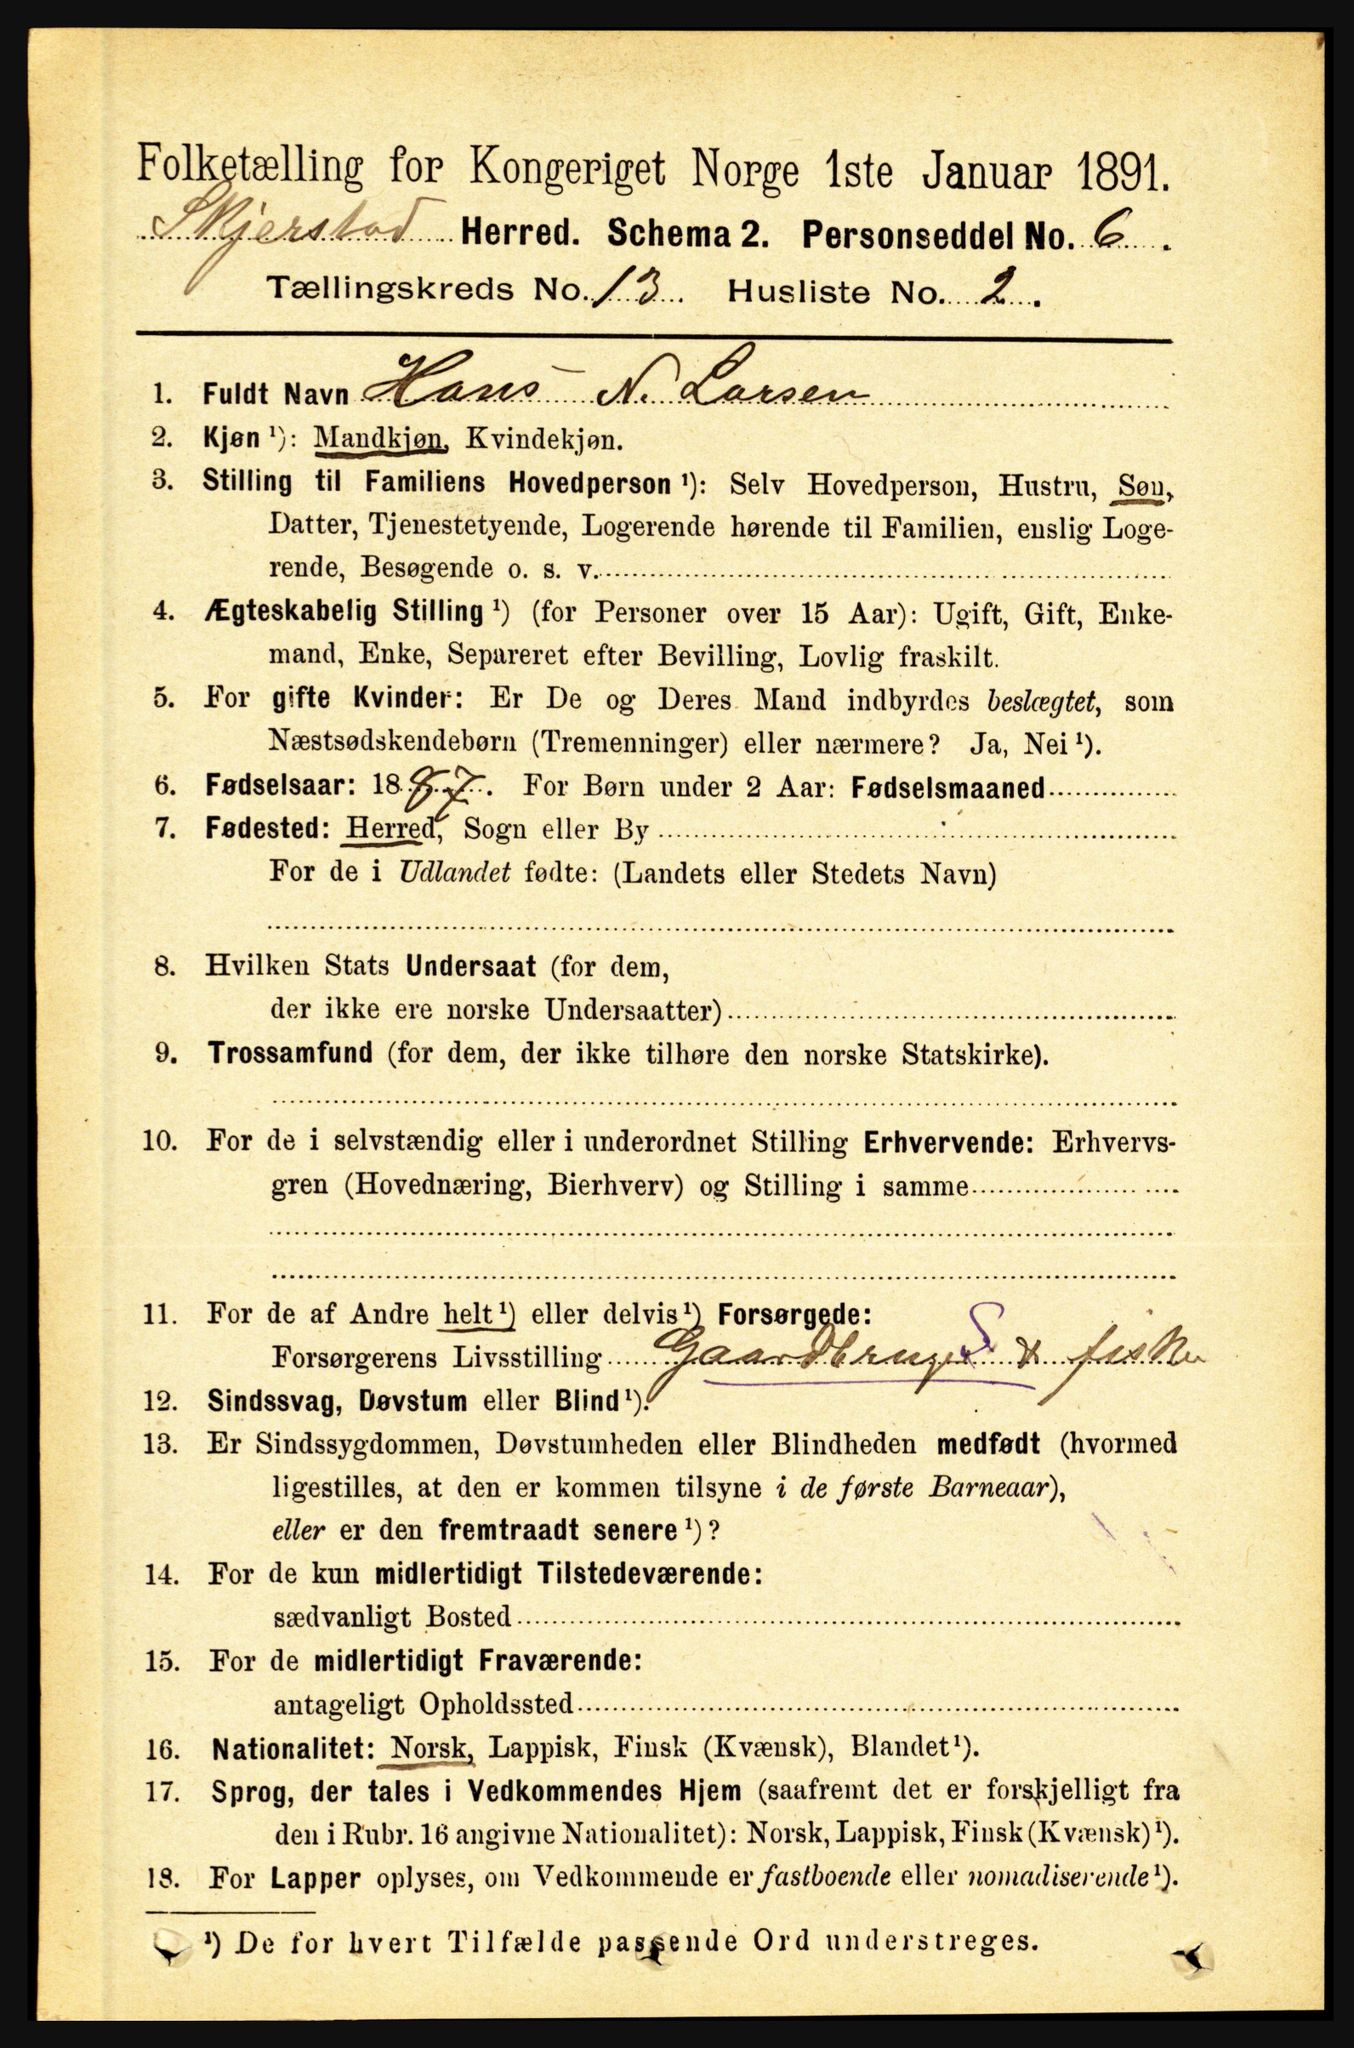 Folketælling for Kongeriget Norge 1ste Januar 1891.
Skjerstad Herred. Schema 2. Personseddel No. 6.
Tællingskreds No. 13. Husliste No. 2.
1. Fuldt Navn Hans N. Larsen
2. Kjøn ¹): Mandkjøn, Kvindekjøn.
3. Stilling til Familiens Hovedperson ¹): Selv Hovedperson, Hustru, Søn,
Datter, Tjenestetyende, Logerende hørende til Familien, enslig Loge-
rende, Besøgende o. s. v.
4. Ægteskabelig Stilling ¹) (for Personer over 15 Aar): Ugift, Gift, Enke-
mand, Enke, Separeret efter Bevilling, Lovlig fraskilt.
5. For gifte Kvinder: Er De og Deres Mand indbyrdes beslægtet, som
Næstsødskendebørn (Tremenninger) eller nærmere? Ja, Nei ¹).
6. Fødselsaar: 1887. For Børn under 2 Aar: Fødselsmaaned
7. Fødested: Herred, Sogn eller By
For de i Udlandet fødte: (Landets eller Stedets Navn)
8. Hvilken Stats Undersaat (for dem,
der ikke ere norske Undersaatter)
9. Trossamfund (for dem, der ikke tilhøre den norske Statskirke).
10. For de i selvstændig eller i underordnet Stilling Erhvervende: Erhvervs-
gren (Hovednæring, Bierhverv) og Stilling i samme
11. For de af Andre helt ¹) eller delvis ¹) Forsørgede:
Forsørgerens Livsstilling Gaardbruger S & fisker
12. Sindssvag, Døvstum eller Blind ¹).
13. Er Sindssygdommen, Døvstumheden eller Blindheden medfødt (hvormed
ligestilles, at den er kommen tilsyne i de første Barneaar),
eller er den fremtraadt senere ¹)?
14. For de kun midlertidigt Tilstedeværende:
sædvanligt Bosted
15. For de midlertidigt Fraværende:
antageligt Opholdssted
16. Nationalitet: Norsk, Lappisk, Finsk (Kvænsk), Blandet ¹).
17. Sprog, der tales i Vedkommendes Hjem (saafremt det er forskjelligt fra
den i Rubr. 16 angivne Nationalitet): Norsk, Lappisk, Finsk (Kvænsk) ¹).
18. For Lapper oplyses, om Vedkommende er fastboende eller nomadiserende ¹).
¹) De for hvert Tilfælde passende Ord understreges.